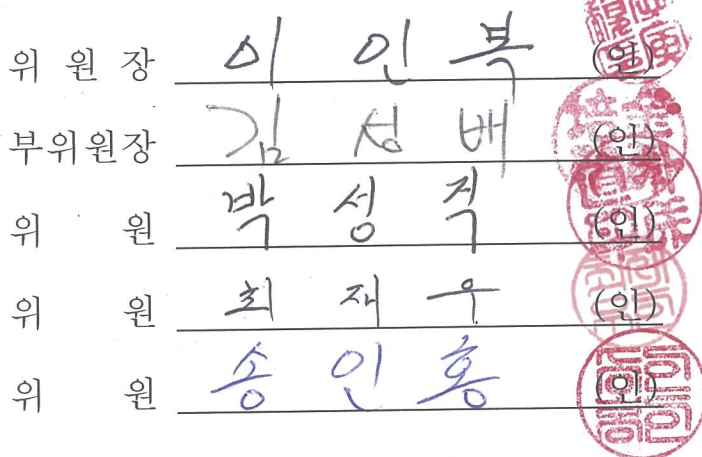 위 원 장 이 인 복 (인)
부위원장 김 성 배 (인)
위 원 박 성 직 (인)
위 원 최 재 우 (인)
위 원 송 인 홍 (인)